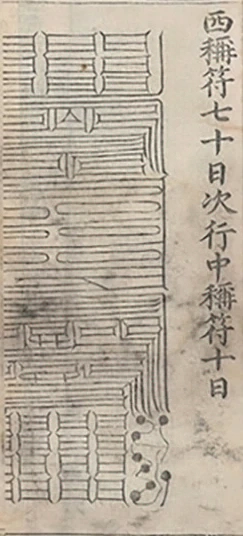 西稱符七十日次行中稱符十日